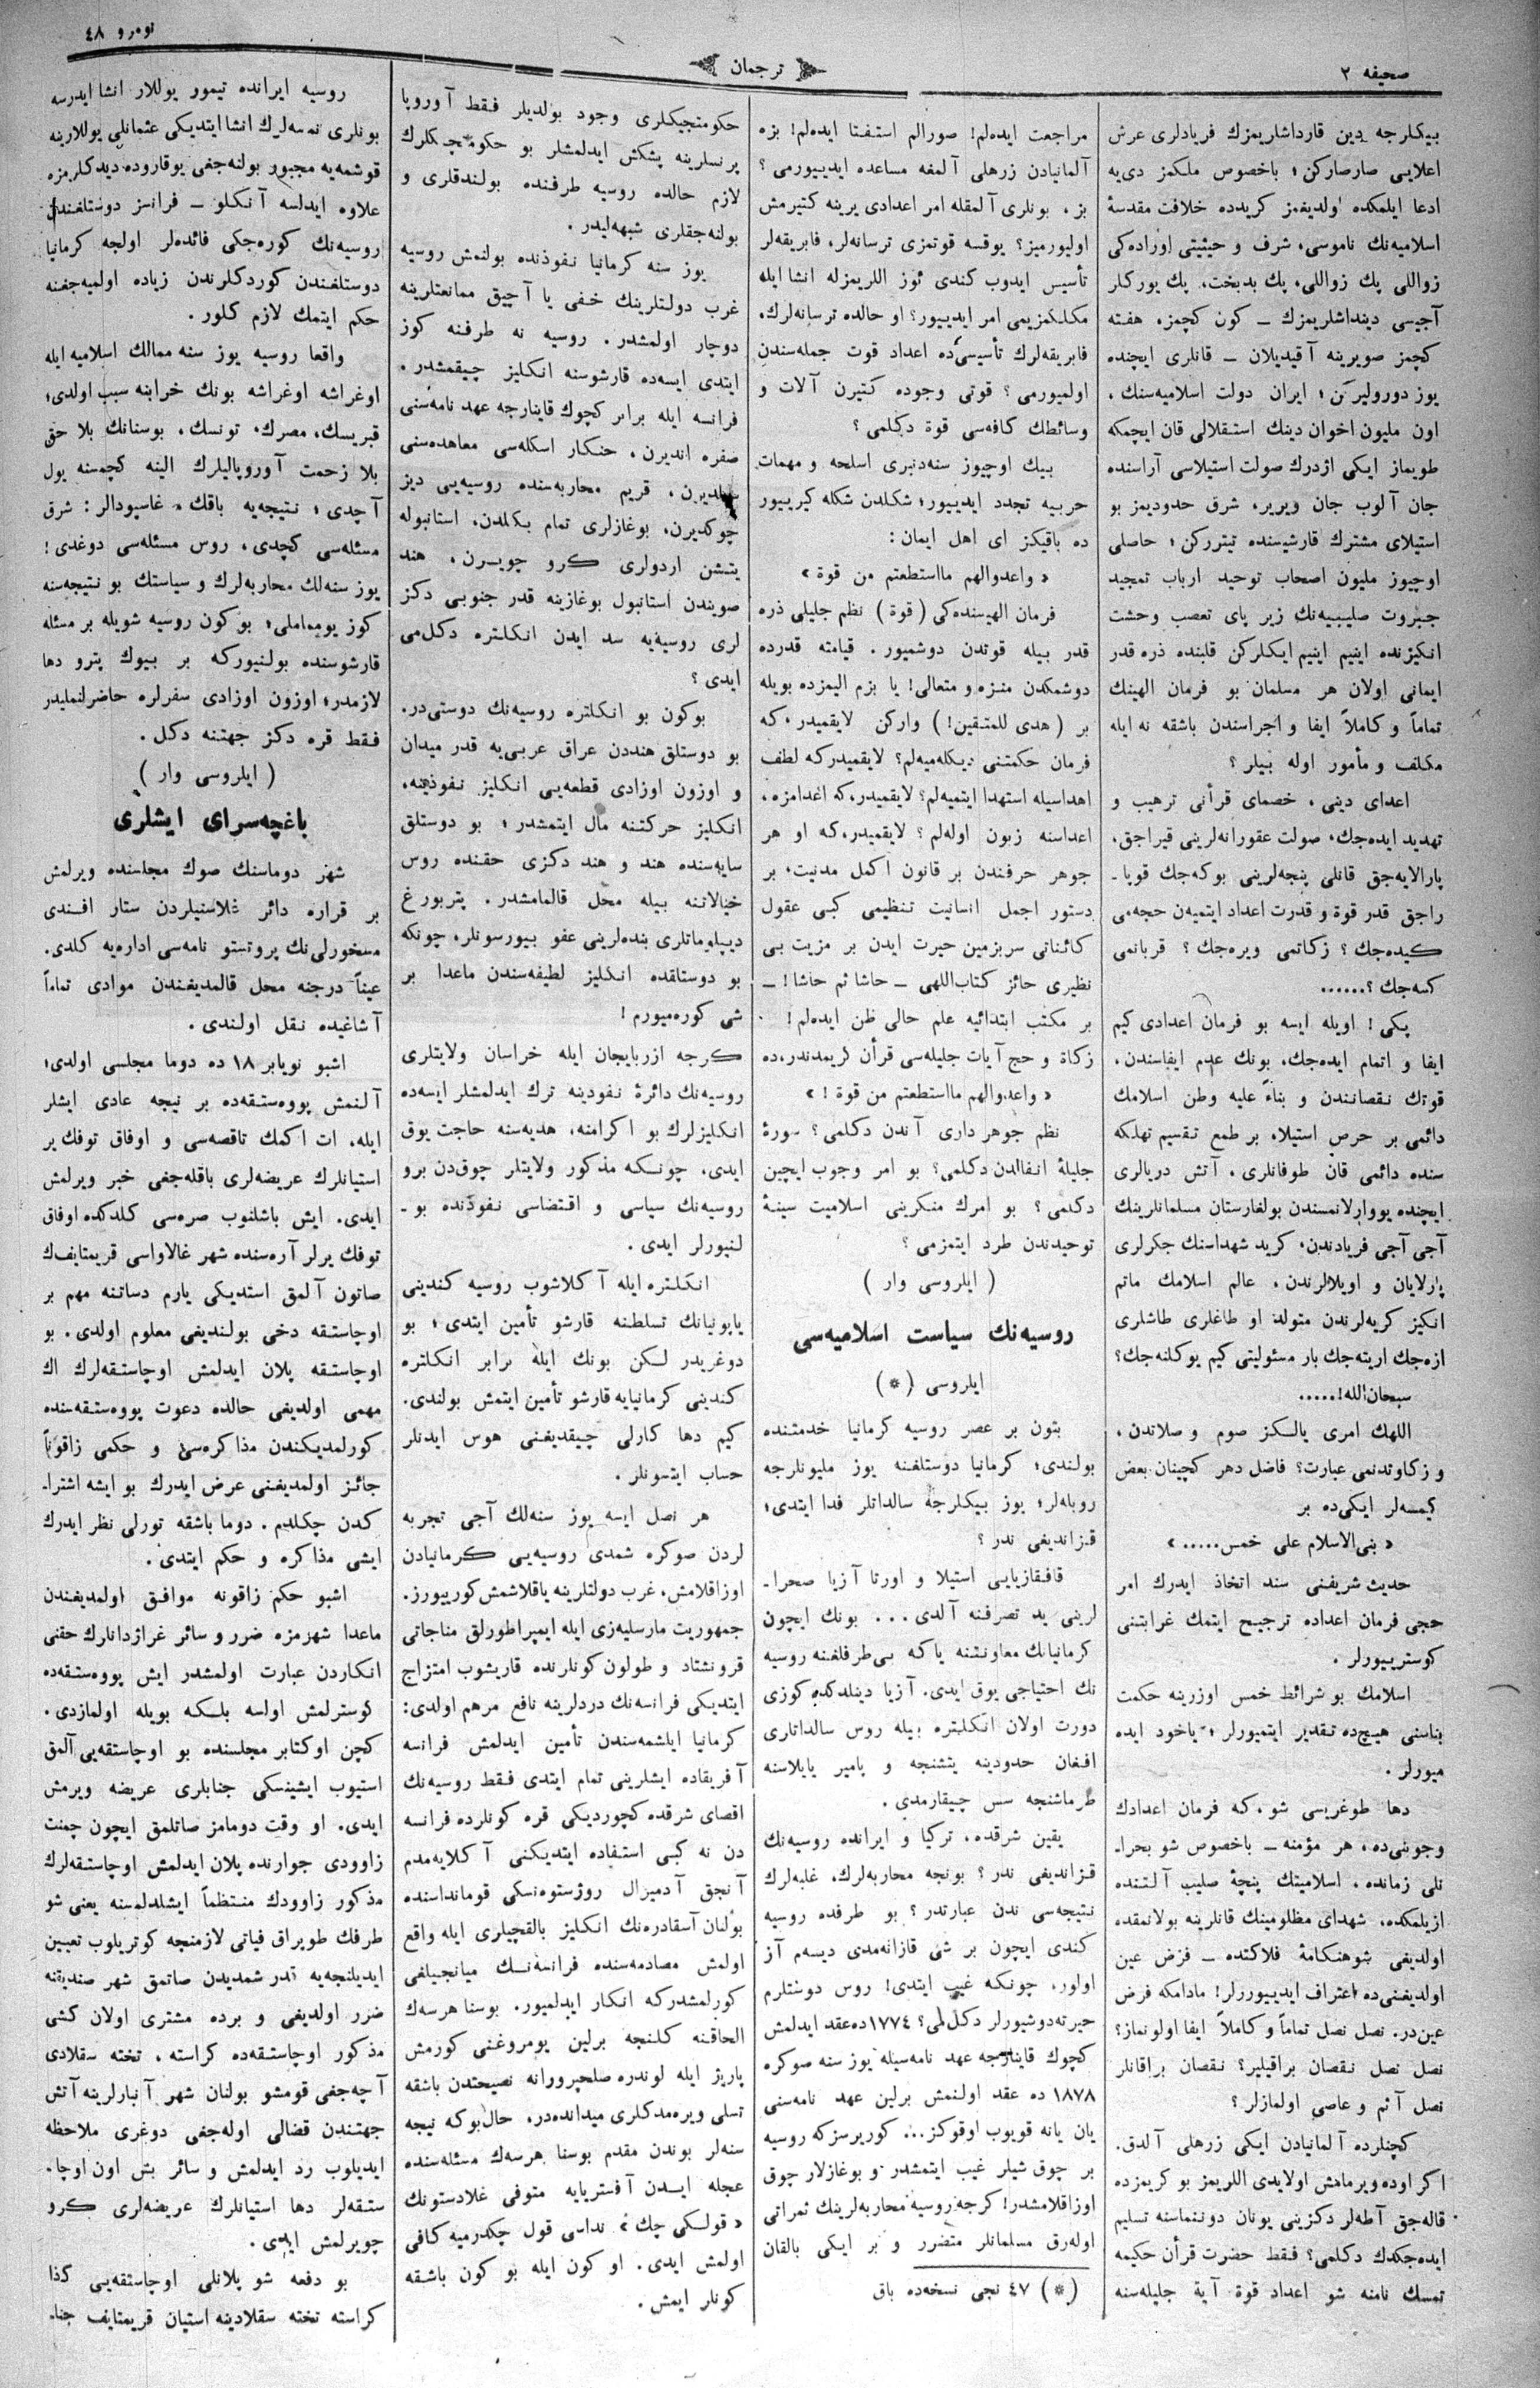 صحیفه ٢
ترجمان
نومرو ٤٨
بیكلرجه دین قارداشاریمزك فریادلری عرش
اعلایی صارصاركن؛ باخصوص ملكمز دی‌یه
ادعا ایلمكده اولدیغمز كریدده خلافت مقدسهٔ
اسلامیه‌نك ناموسی، شرف و حیثیتی اوزاده‌كی
زواللی پك زواللی، پك بدبخت، پك یوركلر
آجیسی دینداشلریمزك ــ كون كچمز، هفته
كچمز صویرینه آقیدیلان ــ قانلری ایچنده
یوز دورولیركن؛ ایران دولت اسلامیه‌سنك،
اون ملیون اخوان دینك استقلالی قان ایچمكه
طویماز ایكی اژدرك صولت استیلاسی آراسنده
جان آلوب جان ویریر، شرق حدودیمز بو
استیلای مشترك قارشیسنده تیتررکن؛ حاصلی
اوچیوز ملیون اصحاب توحید ارباب تمجید
جبروت صلیبیه‌نك زیر پای تعصب وحشت
انكیزنده اینیم اینیم ایكلركن قلبنده ذره قدر
ایمانی اولان هر مسلمان بو فرمان الهینك
تماماً و كاملاً ایفا و اجراسندن باشقه نه ایله
مكلف و مأمور اوله بیلر؟
اعدای دینی، خصمای قرأنی ترهیب و
تهدید ایده‌جك، صولت عقورانه‌لرینی قیراجق،
پارالایه‌جق قانلی پنجه‌لرینی بوكه‌جك قوپا ـ
راجق قدر قوة و قدرت اعداد ایتمیه‌ن حجه‌می
كیده‌جك؟ زكاتمی ویره‌جك؟ قربانمی
كسه‌جك؟......
پكی! اویله ایسه بو فرمان اعدادی كیم
ایفا و اتمام ایده‌جك، بونك عدم ایفاسندن،
قوتك نقصانندن و بناءً علیه وطن اسلامك
دائمی بر حرص استیلاء، بر طمع تقسیم تهلكه
سنده دائمی قان طوفانلری، آتش دریالری
ایچنده یووارلانمسندن بولغارستان مسلمانلرینك
آجی آجی فریادندن، كرید شهداسنك جكرلری
پارلایان و اویلالرندن، عالم اسلامك ماتم
انكیز كریه‌لرندن متولد او طاغلری طاشلری
ازه‌جك اریته‌جك بار مسئولیتی كیم یوكلنه‌جك؟
سبحان‌الله!.....
اللهك امری یالكز صوم و صلاتدن،
و زكاوتدنمی عبارت؟ فاضل دهر كچینان بعض
كیمسه‌لر ایكی‌ده بر
« بنی‌الاسلام علی خمس..... »
حدیث شریفنی سند اتخاذ ایدرك امر
حجی فرمان اعداده ترجیح ایتمك غرابتنی
كوسترییورلر.
اسلامك بو شرائط خمس اوزرینه حكمت
بناسنی هیچ‌ده تقدیر ایتمیورلر؛ یاخود ایده
میورلر.
دها طوغریسی شو، كه فرمان اعدادك
وجوبی‌ده، هر مؤمنه ــ باخصوص شو بحرا ـ
نلی زمانده، اسلامیتك پنجهٔ صلیب آلتنده
ازیلمكده، شهدای مظلومینك قانلرینه بولانمقده
اولدیغی شوهنكامهٔ فلاكتده ــ فرض عین
اولدیغنی‌ده اعتراف ایدییوررلر! مادامكه فرض
عین‌در. نصل نصل تماماً و كاملاً ایفا اولونماز؟
نصل نصل نقصان براقیلیر؟ نقصان براقانلر
نصل آثم و عاصی اولمازلر؟
كچنلرده آلمانیادن ایكی زرهلی آلدق.
اكر اوده ویرمامش اولایدی اللریمز بو كریمزده
قاله‌جق آطه‌لر دكزینی یونان دوننماسنه تسلیم
ایده‌جكدك دكلمی؟ فقط حضرت قرأن حكیمه
تمسك نامنه شو اعداد قوة آیة جلیله‌سنه
مراجعت ایده‌لم! صورالم استفتا ایده‌لم! بزه
آلمانیادن زرهلی آلمغه مساعده ایدییورمی؟
بز، بونلری آلمقله امر اعدادی یرینه كتیرمش
اولیورمیز؟ یوقسه قوتمزی ترسانه‌لر، فابریقه‌لر
تأسیس ایدوب كندی ئوز اللریمزله انشا ایله
مكلكمزیمی امر ایدییور؟ او حالده ترسانه‌لرك،
فابریقه‌لرك تأسیسی‌ده اعداد قوت جمله‌سندن
اولمیورمی؟ قوتی وجوده كتیرن آلات و
وسائطك كافه‌سی قوة دكلمی؟
بیك اوچیوز سنه‌دنبری اسلحه و مهمات
حربیه تجدد ایدییور؛ شكلدن شكله كیرییور
ده باقیكز ای اهل ایمان:
« واعدوالهم مااستطعتم من قوة »
فرمان الهیسنده‌كی (قوة) نظم جلیلی ذره
قدر بیله قوتدن دوشمیور. قیامته قدرده
دوشمكدن منزه و متعالی! یا بزم الیمزده بویله
بر (هدی للمتقین!) واركن لایقمیدر، كه
فرمان حكمتنی دیكله‌میه‌لم؟ لایقمیدركه لطف
اهداسیله استهدا ایتمیه‌لم؟ لایقمیدر، كه اغدامزه،
اعداسنه زبون اوله‌لم؟ لایقمیدر، كه او هر
جوهر حرفندن بر قانون اكمل مدنیت، بر
دستور اجمل انسانیت تنظیمی كبی عقول
كائناتی سربزمین حیرت ایدن بر مزیت بی
نظیری حائز كتاب‌اللهی ــ حاشا ثم حاشا! ــ
بر مكتب ابتدائیه علم حالی ظن ایده‌لم!
زكاة و حج آیات جلیله‌سی قرأن كریمدندر، ده
« واعدوالهم مااستطعتم من قوة! »
نظم جوهر داری آندن دكلمی؟ سورهٔ
جلیلهٔ انفالدن دكلمی؟ بو امر وجوب ایچین
دكلمی؟ بو امرك منكرینی اسلامیت سینهٔ
توحیدندن طرد ایتمزمی؟
(ایلروسی وار)
روسیه‌نك سیاست اسلامیه‌سی
ایلروسی (*)
بتون بر عصر روسیه كرمانیا خدمتنده
بولندی؛ كرمانیا دوستلغنه یوز ملیونلرجه
روبله‌لر؛ یوز بیكلرجه سالداتلر فدا ایتدی؛
قزاندیغی ندر؟
قافقازیایی استیلا و اورتا آزیا صحرا ـ
لرینی ید تصرفنه آلدی... بونك ایچون
كرمانیانك معاونتنه یاكه بی‌طرفلغنه روسیه
نك احتیاجی یوق ایدی. آزیا دینلدكده كوزی
دورت اولان انكلیتره بیله روس سالداتاری
افغان حدودینه یتشنجه و پامیر یایلاسنه
طرماشنجه سس چیقارمدی.
یقین شرقده، تركیا و ایرانده روسیه‌نك
قزاندیغی ندر؟ بونجه محاربه‌لرك، غلبه‌لرك
نتیجه‌سی ندن عبارتدر؟ بو طرفده روسیه
كندی ایچون بر شی قازانه‌مدی دیسه‌م آز
اولور، چونكه غیب ایتدی! روس دوستلرم
حیرته دوشیورلر دكل‌می؟ ١٧٧٤ ده عقد ایدلمش
كچوك قاینارجه عهد نامه‌سیله یوز سنه صوكره
١٨٧٨ ده عقد اولنمش برلین عهد نامه‌سنی
یان یانه قویوب اوقوكز... كوریرسزكه روسیه
بر چوق شیلر غیب ایتمشدر و بوغازلار چوق
اوزاقلامشدر! كرجه روسیه محاربه‌لرینك ثمراتی
اوله‌رق مسلمانلر متضرر و بر ایكی بالقان
(*) ٤٧ نجی نسخه‌ده باق
حكومتجیكلری وجود بولدیلر فقط آوروپا
پرنسلرینه پشكش ایدلمشلر بو حكومتجكلرك
لازم حالده روسیه طرفنده بولندقلری و
بولنه‌جقلری شبهه‌لیدر.
یوز سنه كرمانیا نفوذنده بولنمش روسیه
غرب دولتلرینك خفی یا آچیق ممانعتلرینه
دوچار اولمشدر. روسیه نه طرفنه كوز
ایتدی ایسه‌ده قارشوسنه انكلیز چیقمشدر.
فرانسه ایله برابر كچوك قاینارجه عهد نامه‌سنی
صفره اندیرن، حنكار اسكله‌سی معاهده‌سنی
قریم محاربه‌سنده روسیه‌یی دیز
چوكدیرن، بوغازلری تمام بكلدن، استانبوله
یتشن اردولری كرو چویرن، هند
صویندن استانبول بوغازینه قدر جنوبی دكز
لری روسیه‌یه سد ایدن انكلتره دكل‌می
ایدی؟
بوكون بو انكلتره روسیه‌نك دوستی‌در.
بو دوستلق هنددن عراق عربی‌یه قدر میدان
و اوزون اوزادی قطعه‌یی انكلیز نفوذینه،
انكلیز حركتنه مال ایتمشدر؛ بو دوستلق
سایه‌سنده هند و هند دكزی حقنده روس
خیالاتنه بیله محل قالمامشدر. پتربورغ
دیپلوماتلری بنده‌لرینی عفو بیورسونلر، چونكه
بو دوستلقده انكلیز لطیفه‌سندن ماعدا بر
شی كوره‌میورم!
كرجه ازربایجان ایله خراسان ولایتلری
روسیه‌نك دائرهٔ نفوذینه ترك ایدلمشلر ایسه‌ده
انكلیزلرك بو اكرامنه، هدیه‌سنه حاجت یوق
ایدی، چونكه مذكور ولایتلر چوق‌دن برو
روسیه‌نك سیاسی و اقتضاسی نفوذنده بو ـ
لنیورلر ایدی.
انكلتره ایله آكلاشوب روسیه كندینی
یابونیانك تسلطنه قارشو تأمین ایتدی؛ بو
دوغریدر لكن بونك ایله برابر انكلتره
كندینی كرمانیایه قارشو تأمین ایتمش بولندی.
كیم دها كارلی چیقدیغنی هوس ایدنلر
حساب ایتسونلر.
هر نصل ایسه یوز سنه‌لك آجی تجربه
لردن صوكره شمدی روسیه‌یی كرمانیادن
اوزاقلامش، غرب دولتلرینه یاقلاشمش كورییورز.
جمهوریت مارسلیه‌زی ایله ایمپراطورلق مناجاتی
قرونشتاد و طولون كونلرنده قاریشوب امتزاج
ایتدیكی فرانسه‌نك دردلرینه نافع مرهم اولدی:
كرمانیا ایلشمه‌سندن تأمین ایدلمش فرانسه
آفریقاده ایشلرینی تمام ایتدی فقط روسیه‌نك
اقصای شرقده كچوردیكی قره كونلرده فرانسه
دن نه كبی استفاده ایتدیكنی آكلایه‌مدم
آنجق آدمیرال روژستوه‌نسكی قوماندا‌سنده
بولنان آسقادره‌نك انكلیز بالقچیلری ایله واقع
اولمش مصادمه‌سنده فرانسه‌نك میانجیلغی
كورلمشدركه انكار ایدلمیور. بوسنا هرسه‌ك
الحاقنه كلنجه برلین یومروغنی كورمش
پاریز ایله لوندره صلحپرورانه نصیحتدن باشقه
تسلی ویره‌مدكلری میداندەدر، حال‌بوكه نیجه
سنه‌لر بوندن مقدم بوسنا هرسه‌ك مسئله‌سنده
عجله ایدن آفستریایه متوفی غلادستونك
« قولكی چك » نداسی قول چكدرمیه كافی
اولمش ایدی. او كون ایله بو كون باشقه
كونلر ایمش.
روسیه ایرانده تیمور یوللار انشا ایدرسه
بونلری نمسه‌لرك انشا ایتدیكی عثمانلی یوللارینه
قوشمه‌یه مجبور بولنه‌جغی یوقاروده دیدكلریمزه
علاوه ایدلسه آنكلو ــ فرانسز دوستلغندن
روسیه‌نك كوره‌جكی فائده‌لر اولجه كرمانیا
دوستلغندن كوردكلرندن زیاده اولمیه‌جغنه
حكم ایتمك لازم كلور.
واقعا روسیه یوز سنه ممالك اسلامیه ایله
اوغراشه اوغراشه بونك خرابنه سبب اولدی؛
قبریسك، مصرك، تونسك، بوسنانك بلا حق
بلا زحمت آوروپالیلرك الینه كچمسنه یول
آچدی؛ نتیجه‌یه باقك، غاسپودالر: شرق
مسئله‌سی كچدی، روس مسئله‌سی دوغدی!
یوز سنه‌لك محاربه‌لرك و سیاستك بو نتیجه‌سنه
كوز یومماملی؛ بوكون روسیه شویله بر مسئله
قارشوسنده بولنیوركه بر بیوك پترو دها
لازمدر؛ اوزون اوزادی سفرلره حاضرلنملیدر
فقط قره دكز جهتنه دكل.
(ایلروسی وار)
باغچه‌سرای ایشلری
شهر دوماسنك صوك مجلسنده ویرلمش
بر قراره دائر غلاسنیلردن ستار افندی
مسخورلی‌نك پروتستو نامه‌سی اداره‌یه كلدی.
عیناً درجنه محل قالمدیغندن موادی تماماً
آشاغیده نقل اولندی.
اشبو نویابر ١٨ ده دوما مجلسی اولدی؛
آلنمش پووه‌ستقه‌ده بر نیجه عادی ایشلر
ایله، ات اكمك تاقصه‌سی و اوفاق توفك یر
استیانلرك عریضه‌لری باقله‌جغی خبر ویرلمش
ایدی. ایش باشلنوب صره‌سی كلدكده اوفاق
توفك یرلر آره‌سنده شهر غالاواسی قریمتایف‌ك
صاتون آلمق استدیكی یارم دساتنه مهم بر
اوچاستقه دخی بولندیغی معلوم اولدی. بو
اوچاستقه پلان ایدلمش اوچاستقه‌لرك اك
مهمی اولدیغی حالده دعوت پووه‌ستقه‌سنده
كورلمدیكندن مذاكره‌سی و حكمی زاقوناً
جائز اولمدیغنی عرض ایدرك بو ایشه اشترا ـ
كدن چكلدم. دوما باشقه تورلی نظر ایدرك
ایشی مذاكره و حكم ایتدی.
اشبو حكم زاقونه موافق اولمدیغندن
ماعدا شهرمزه ضرر و سائر غراژدانلرك حقنی
انكاردن عبارت اولمشدر ایش پووه‌ستقه‌ده
كوسترلمش اولسه بلكه بویله اولمازدی.
كچن اوكتابر مجلسنده بو اوچاستقه‌یی آلمق
استیوب ایشینسكی جنابلری عریضه ویرمش
ایدی. او وقت دومامز صاتلمق ایچون چمنت
زاوودی جوارنده پلان ایدلمش اوچاستقه‌لرك
مذكور زاوودك منتظماً ایشلدلمسنه یعنی شو
طرفك طوپراق فیاتی لازمنجه كوتریلوب تعیین
ایدیلنجه‌یه قدر شمدیدن صاتمق شهر صندیقنه
ضرر اولدیغی و برده مشتری اولان كشی
مذكور اوچاستقه‌ده كراسته، تخته سقلادی
آچه‌جغی قومشو بولنان شهر آنبارلرینه آتش
جهتندن قضالی اوله‌جغی دوغری ملاحظه
ایدیلوب رد ایدلمش و سائر بش اون اوچا ـ
ستقه‌لر دها استیانلرك عریضه‌لری كرو
چویرلمش ایدی.
بو دفعه شو پلانلی اوچاستقه‌یی كذا
كراسته تخته سقلادینه استیان قریمتایف جنا ـ